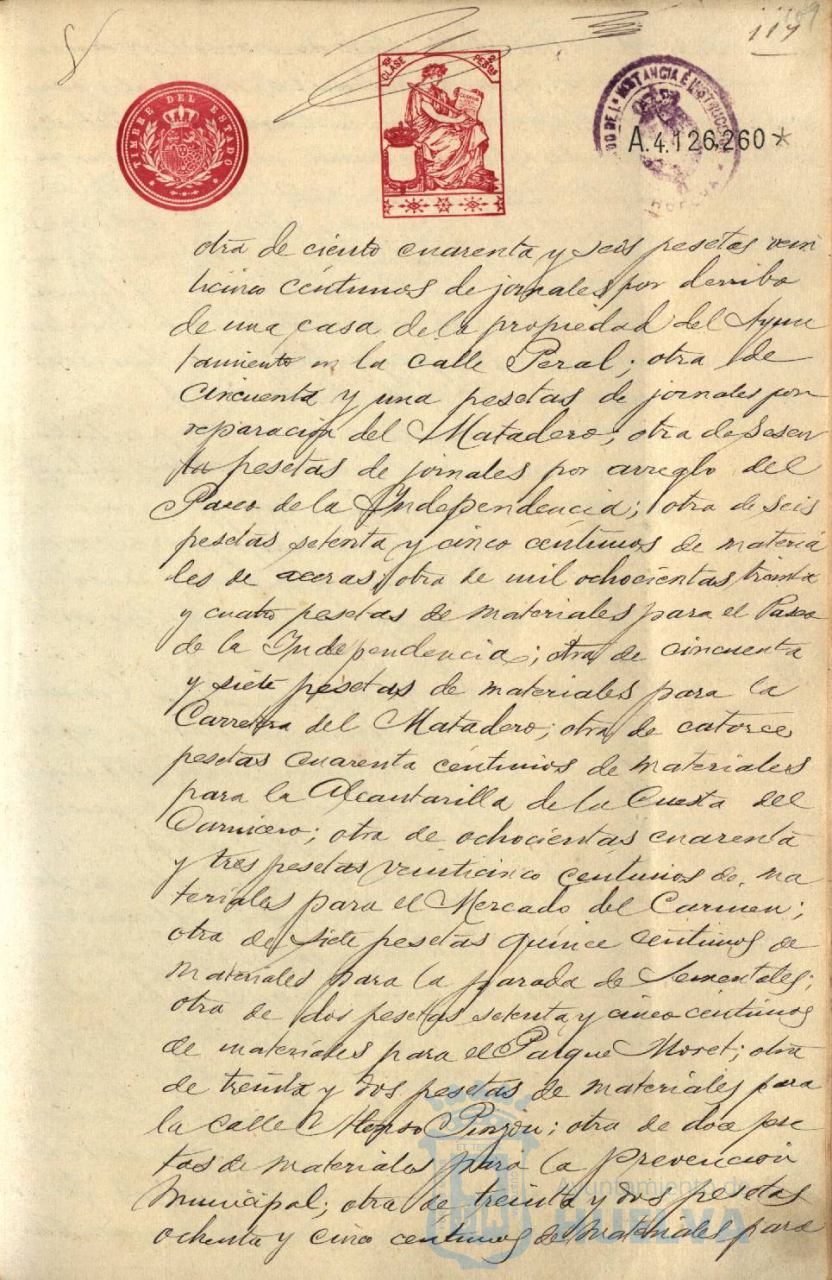 109
117
TIMBRE DEL ESTADO
10ª CLASE 2 PESETAS
JUZGADO DE 1ª INSTANCIA É INSTRUCCION
HUELVA
A.4.126,260*
otra de ciento cuarenta y seis pesetas vein
ticinco céntimos de jornales por derribo
de una casa de la propiedad del Ayun
tamiento en la calle Peral; otra de
cincuenta y una pesetas de jornales por
reparación del Matadero; otra de sesen
ta pesetas de jornales por arreglo del
Paseo de la Independencia; otra de seis
pesetas setenta y cinco céntimos de materia
les de aceras, otra de mil ochocientas treinta
y cuatro pesetas de materiales para el Paseo
de la Independencia; otra de cincuenta
y siete pesetas de materiales para la
Carretera del Matadero; otra de catorce
pesetas cuarenta céntimos de materiales
para la Alcantarilla de la Cuesta del
Carnicero; otra de ochocientas cuarenta
y tres pesetas veinticinco centimos de ma
teriales para el Mercado del Carmen;
otra de siete pesetas quince centimos de
materiales para la parada de Sementales;
otra de dos pesetas setenta y cinco centimos
de materiales para el Parque Moret; otra
de treinta y dos pesetas de materiales para
la calle Alonso Pinzon; otra de doce pese
tas de materiales para la Prevención
Municipal; otra de treinta y dos pesetas
ochenta y cinco centimos de materiales para
Ayuntamiento de
HUELVA